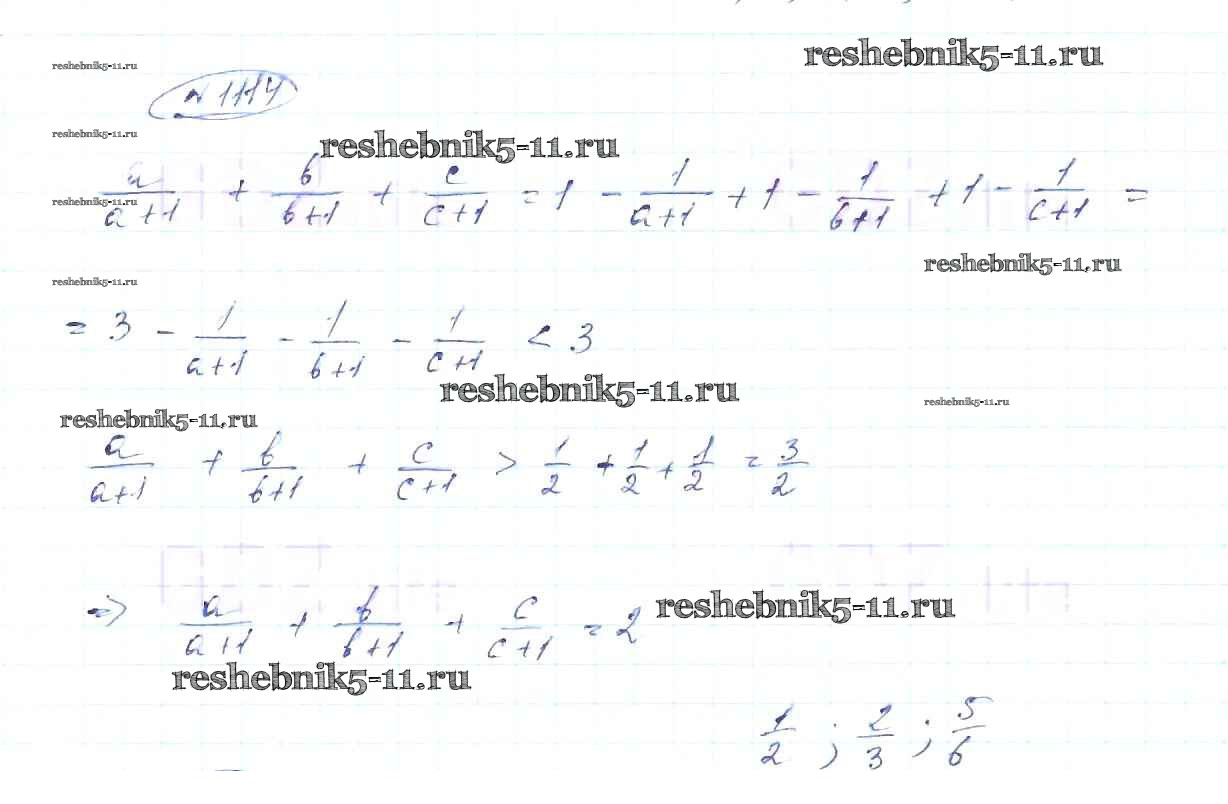 reshebnik5-11.ru
reshebnik5-11.ru
№ 1114
reshebnik5-11.ru
reshebnik5-11.ru
a/(a+1) + b/(b+1) + c/(c+1) = 1 - 1/(a+1) + 1 - 1/(b+1) + 1 - 1/(c+1) =
reshebnik5-11.ru
reshebnik5-11.ru
reshebnik5-11.ru
= 3 - 1/(a+1) - 1/(b+1) - 1/(c+1) < 3
reshebnik5-11.ru
reshebnik5-11.ru
reshebnik5-11.ru
a/(a+1) + b/(b+1) + c/(c+1) > 1/2 + 1/2 + 1/2 = 3/2
reshebnik5-11.ru
=> a/(a+1) + b/(b+1) + c/(c+1) = 2
reshebnik5-11.ru
1/2 ; 2/3 ; 5/6